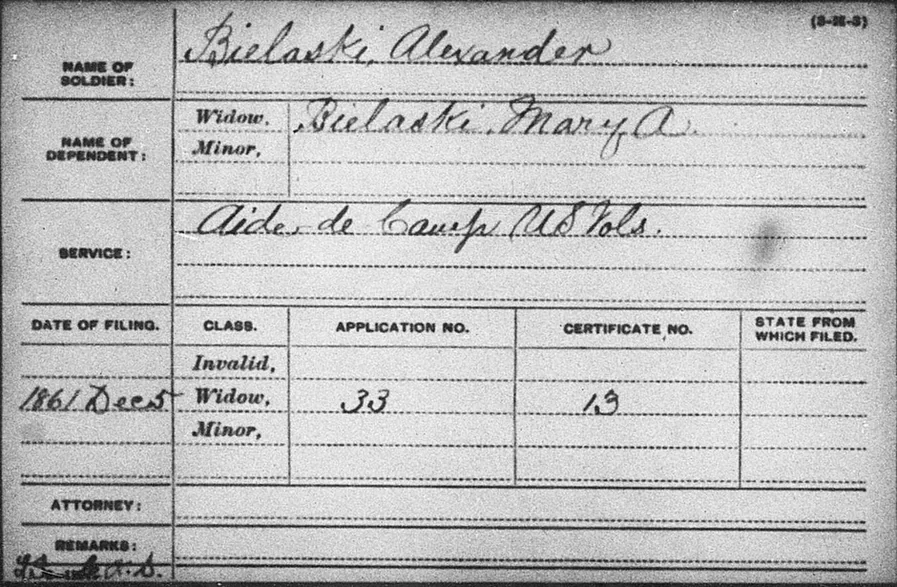 (3-M-3)
NAME OF SOLDIER:
Bielaski, Alexander
NAME OF DEPENDENT:
Widow,
Bielaski, Mary A.
Minor,
SERVICE:
Aide, de Camp US Vols.
DATE OF FILING.
CLASS.
APPLICATION NO.
CERTIFICATE NO.
STATE FROM WHICH FILED.
Invalid,
1861 Dec 5
Widow,
33
13
Minor,
ATTORNEY:
REMARKS: